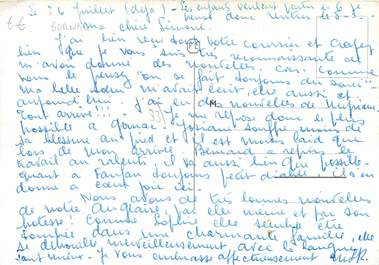 Le 26 Juillet (déjà) - Les enfants veulent partir le 6 Je
pense donc rentrer le 5-8-
6€
Ma chère Simone.
J'ai bien reçu votre courrier et croyez
bien que je vous suis très reconnaissante de
m'avoir donné des nouvelles. Car. Comme
vous le pensez "on se fait toujours du souci"...
ma belle sœur m'avait écrit, elle aussi et
aujourd'hui. J'ai eu des nouvelles de
Tout arrive!!! Je me repose donc le plus
possible à souffre moins de
sa blessure au pied et il est moins laid que
lors de mon arrivée. Bernard a repris le
travail au ralenti, il va aussi bien que possible
quant à Fanfan toujours petit diable il s'en
donne à cœur joie ici.
Nous avons de très bonnes nouvelles
de notre par elle même et par son
hôtesse. Comme Sophie elle semble être
tombée dans une charmante famille, elle
se débrouille merveilleusement avec la langue
tant mieux. Je vous embrasse affectueusement